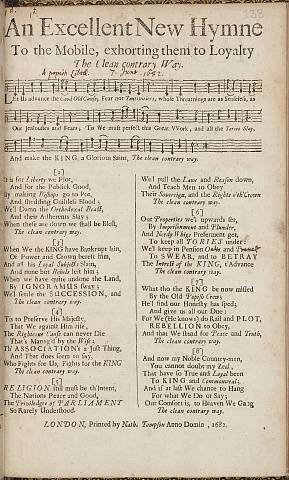 138
An Excellent New Hymne
To the Mobile, exhorting them to Loyalty
The Clean contrary Way.
A popish Libell. 7. June 1682.
Et Us advance the Good Old Cause, Fear not Tantivitiers, whose Threatnings are as senseless, as
Our Jealousies and Fears; 'Tis We must perfect this Great Work, and all the Tories Slay,
And make the KING, a Glorious Saint, The clean contrary way.
[2]
It is for Liberty we Plot,
And for the Publick Good,
By making Bishops go to Pot,
And shedding Guiltless Blood;
We'l Damn the Orthodoxal Beast,
And their Adherents Slay;
When these are down we shall be Blest,
The clean contrary way.
[3]
When We the KING have Bankrupt lain,
Of Power and Crown bereft him,
And all his Loyal Subjects slain,
And none but Rebels left him;
When we have quite undone the Land,
By IGNORAMUS sway;
We'l settle the SUCCESSION, and
The clean contrary way.
[4]
'Tis to Preserve his Majesty,
That We against Him rise,
The Righteous Cause can never Die
That's Manag'd by the Wise;
Th' ASSOCIATION's a Just Thing,
And That does seem to say,
Who Fights for Us, Fights for the KING
The clean contrary way.
[5]
RELIGION still must be th'Intent,
The Nations Peace and Good,
The Priviledges of PARLIAMENT
So Rarely Understood.
We'l pull the Laws and Reason down,
And Teach Men to Obey
Their Sovereign, and the Rights o'th'Crown
The clean contrary way.
[6]
Our Properties we'l upwards set,
By Imprisonment and Plunder,
And Needy Whigs Preferment get,
To keep all TORIES under:
We'l keep in Pension Oates and
To SWEAR, and to BETRAY
The Int'rest of the KING, t'Advance
The clean contrary way.
[7]
What tho the KING be now misled
By the Old Popish Crew;
He'l find our Honesty has sped;
And give us all our Due:
For We (He knows) do Rail and PLOT,
REBELLION to Obey,
And that We stand for Peace and Truth,
The clean contrary way.
[8]
And now my Noble Country-men,
You cannot doubt my Zeal,
That have so True and Loyal been
To KING and Commonweal;
And if at last We chance to Hang
For what We Do or Say;
Our Comfort is, to Heaven We Gang
The clean contrary way.
LONDON, Printed by Nath. Tompson Anno Domin, 1682.